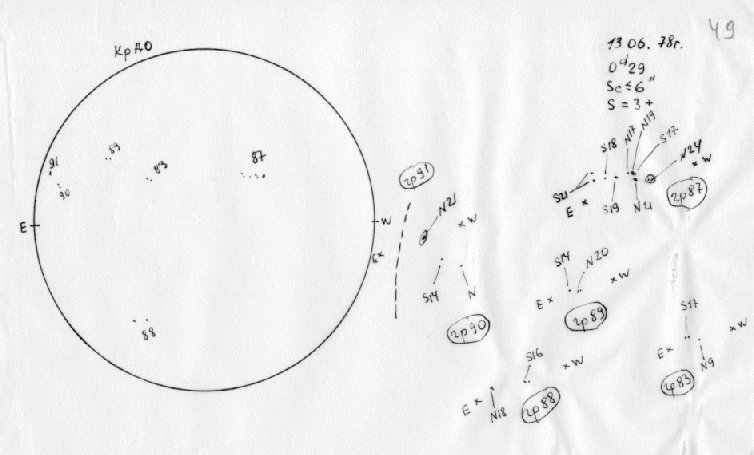 49
КрАО
13.06.78г.
0ᵈ29
Sc≤6"
S=3+
91
89
83
87
90
E
W
E×
88
гр91
N21
×W
S14
N
гр90
S18
N17
N19
S17
N24
×W
S21
E ×
S19
N21
гр87
S14
N20
×W
E×
гр89
S16
×W
E ×
N18
гр88
S17
×W
E ×
N9
гр83